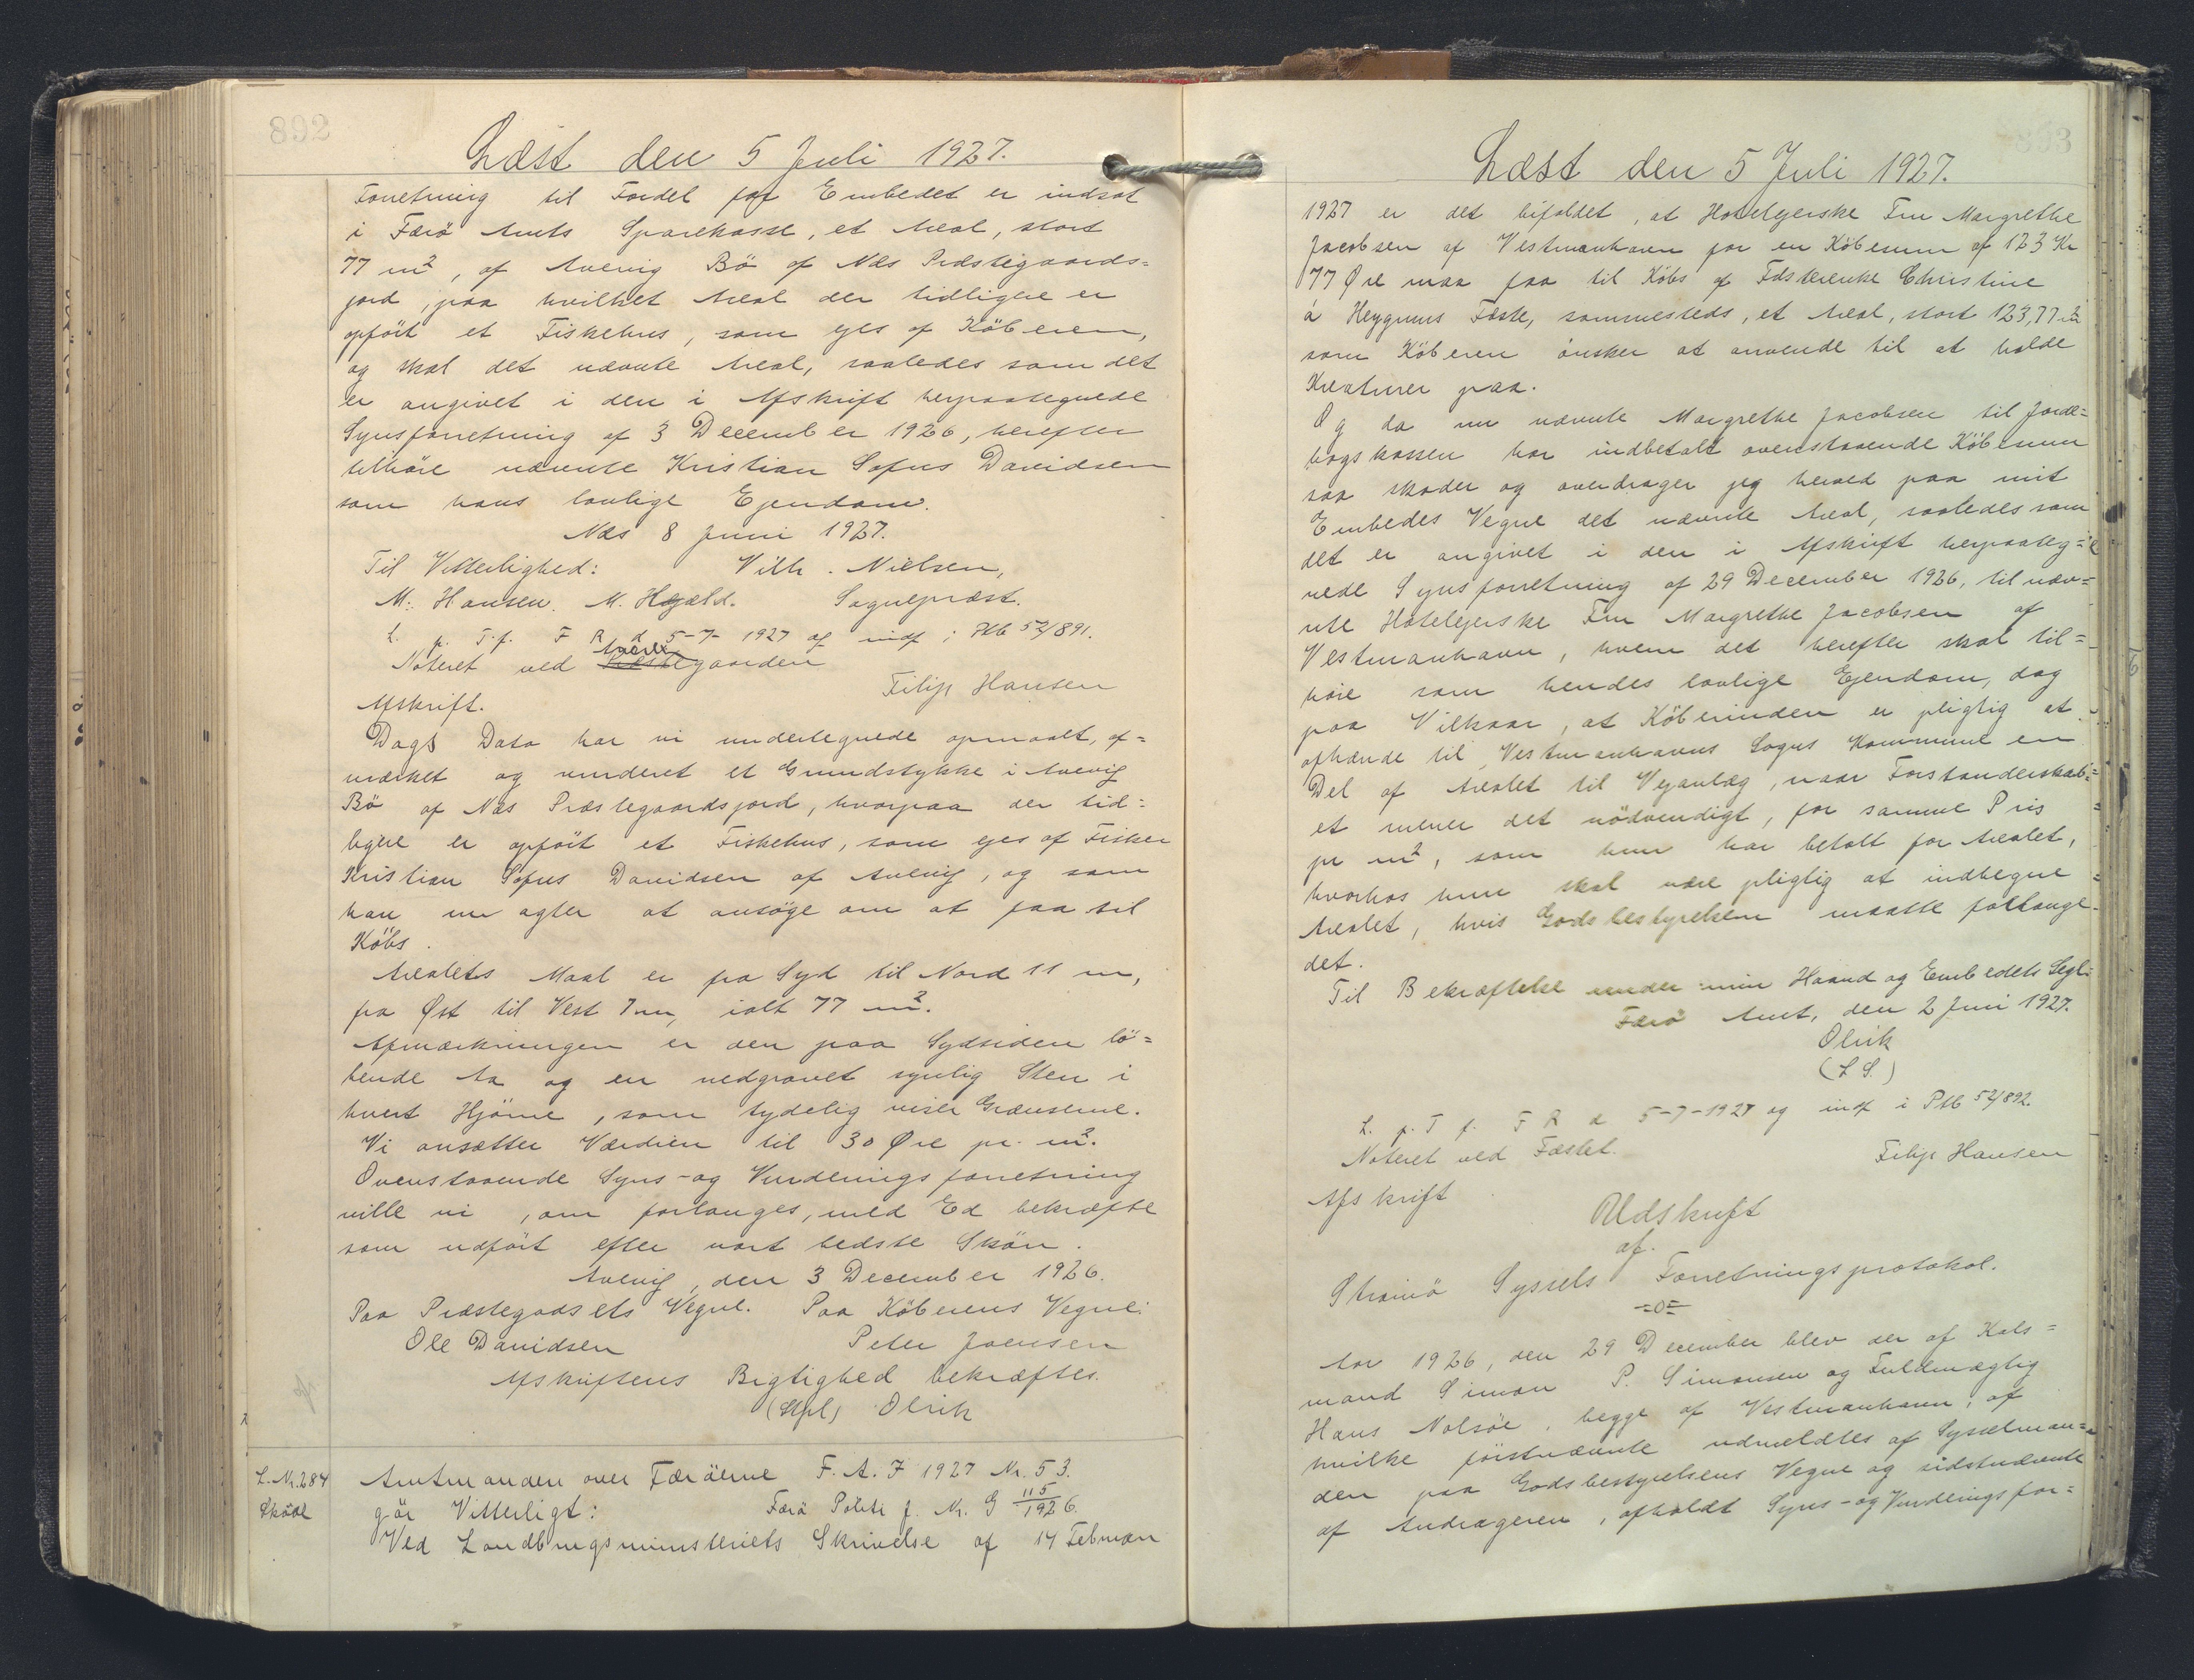 892
Læst den 5 Juli 1927.
Forretning til Fordel for Embedet er indsat
i Færö Amts Sparekasse, et Areal, stort
77 m², af Avevig Bö af Næs Præstegaards=
jord, paa hvilket Areal der tidligere er
opfört et Fiskehus, som ejes af Köberen,
og skal det nævnte Areal, saaledes som det
er angivet i den i Afskrift herpaategnede
Synsforretning af 3 December 1926, herefter
tilhöre nævnte Kristian Sofus Davidsen
som hans lovlige Ejendom.
Næs 8 Juni 1927.
Til Vitterlighed: Vilh. Nielsen,
M. Hansen. M. Hejæld. Sognepræst.
L. p. T. f. F R d 5-7-1927 og indf i Ptb 52/891.
Noteret ved gaarden
Filip Hansen
Afskrift.
Dags Dato har vi undertegnede opmaalt, af=
mærket og vurderet et Grundstykke i Avevig
Bö af Næs Præstegaardsjord, hvorpaa der tid=
ligere er opfört et Fiskehus, som ejes af Fisker
Kristian Sofus Davidsen af Avevig, og som
han nu agter at ansöge om at faa til
Köbs.
Arealets Maal er fra Syd til Nord 11 m,
fra Øst til Vest 7 m, ialt 77 m².
Afmærkningen er den paa Sydsiden lö=
bende Aa og en nedgravet synlig Sten i
hvert Hjörne, som tydelig viser Grænserne.
Vi ansætter Værdien til 30 Øre pr. m².
Ovenstaaende Syns- og Vurderingsforretning
ville vi, om forlanges, med Ed bekræfte
som udfört efter vort bedste Skön.
Avevig, den 3 December 1926.
Paa Præstegodsets Vegne. Paa Köberens Vegne:
Ole Davidsen Peter Joensen
Afskriftens Rigtighed bekræftes.
(Stpl) Olrik
L. Nr. 284 Amtmanden over Færöerne F. A. J 1927 Nr. 53.
Sköde gör Vitterligt: Færö Politi J. Nr. G 115/1926.
Ved Landbrugsministeriets Skrivelse af 14 Februar
893
Læst den 5 Juli 1927.
1927 er det bifaldet, at Hotelejerske Fru Margrethe
Jacobsen af Vestmanhavn for en Köbesum af 123 Kr
77 Øre maa faa til Köbs af Fæsterenke Christine
á Heygums Fæste, sammesteds, et Areal, stort 123,77 m²
som Köberen önsker at anvende til at holde
Kreaturer paa.
Og da nu nævnte Margrethe Jacobsen til Jorde=
bogskassen har indbetalt ovenstaaende Köbesum
saa skøder og overdrager jeg herved paa mit
Embedes Vegne det nævnte Areal, saaledes som
det er angivet i den i Afskrift herpaateg=
nede Synsforretning af 29 December 1926, til næv=
nte Hotelejerske Fru Margrethe Jacobsen af
Vestmanhavn, hvem det herefter skal til=
höre som hendes lovlige Ejendom, dog
paa Vilkaar, at Köberinden er pligtig at
afhænde til Vestmanhavns Sogns Kommune en
Del af Arealet til Vejanlæg, naar Forstanderskab=
et mener det nödvendigt, for samme Pris
pr m², som hun har betalt for Arealet,
hvorhos hun skal være pligtig at indhegne
Arealet, hvis Godsbestyrelsen maatte forlange
det.
Til Bekræftelse under min Haand og Embedets Segl:
Færö Amt, den 2 Juni 1927.
Olrik
(L S.)
L. p. T f. F R d 5-7-1927 og indf i Ptb 52/892.
Noteret ved Fæstet.
Filip Hansen
Afskrift
Udskrift
af
Strömö Syssels Forretningsprotokol.
=o=
Aar 1926, den 29 December blev der af Kals=
mand Simon P. Simonsen og Fuldmægtig
Hans Nolsöe, begge af Vestmanhavn, af
hvilke förstnævnte udmeldtes af Sysselman=
den paa Godsbestyrelsens Vegne og sidstnævnte
af Andrageren, afholdt Syns- og Vurderingsfor=